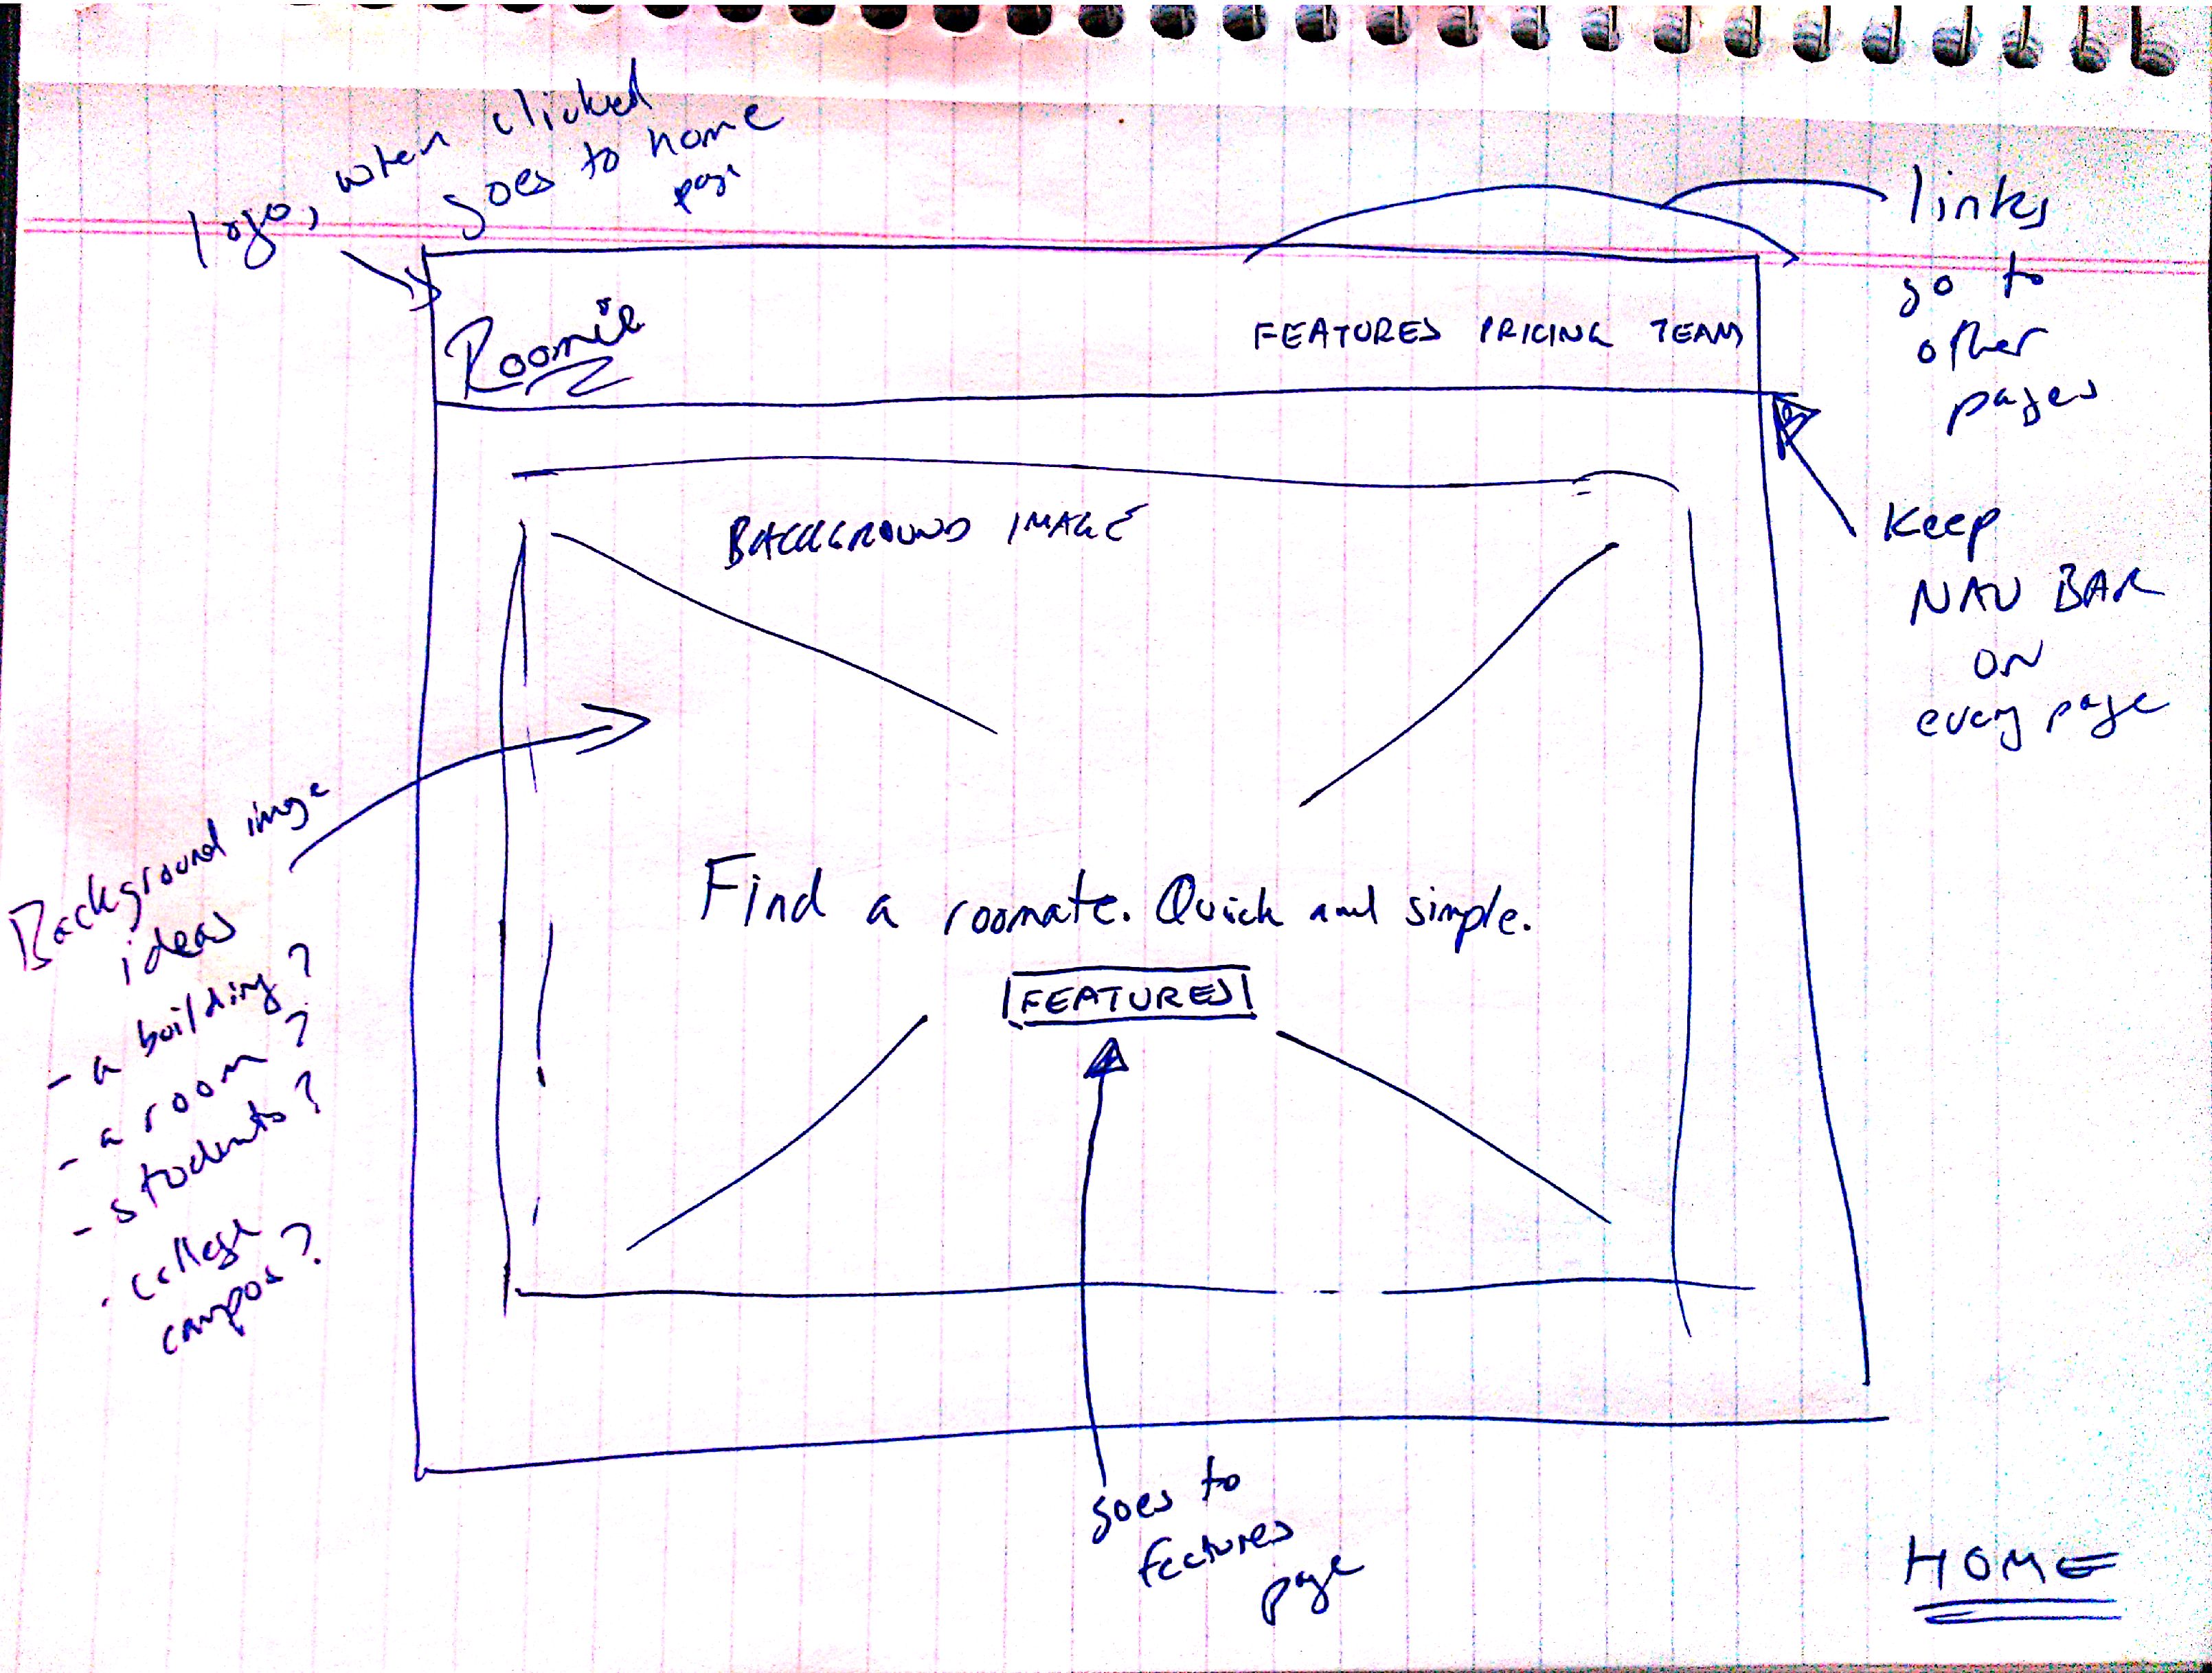 logo, when clicked
goes to home
page
links
go to
other
pages
Roomie
FEATURES PRICING TEAM
Keep
NAV BAR
ON
every page
BACKGROUND IMAGE
Background image
ideas
- a building?
- a room?
- students?
- college
campus?
Find a roomate. Quick and simple.
FEATURES
goes to
features
page
HOME